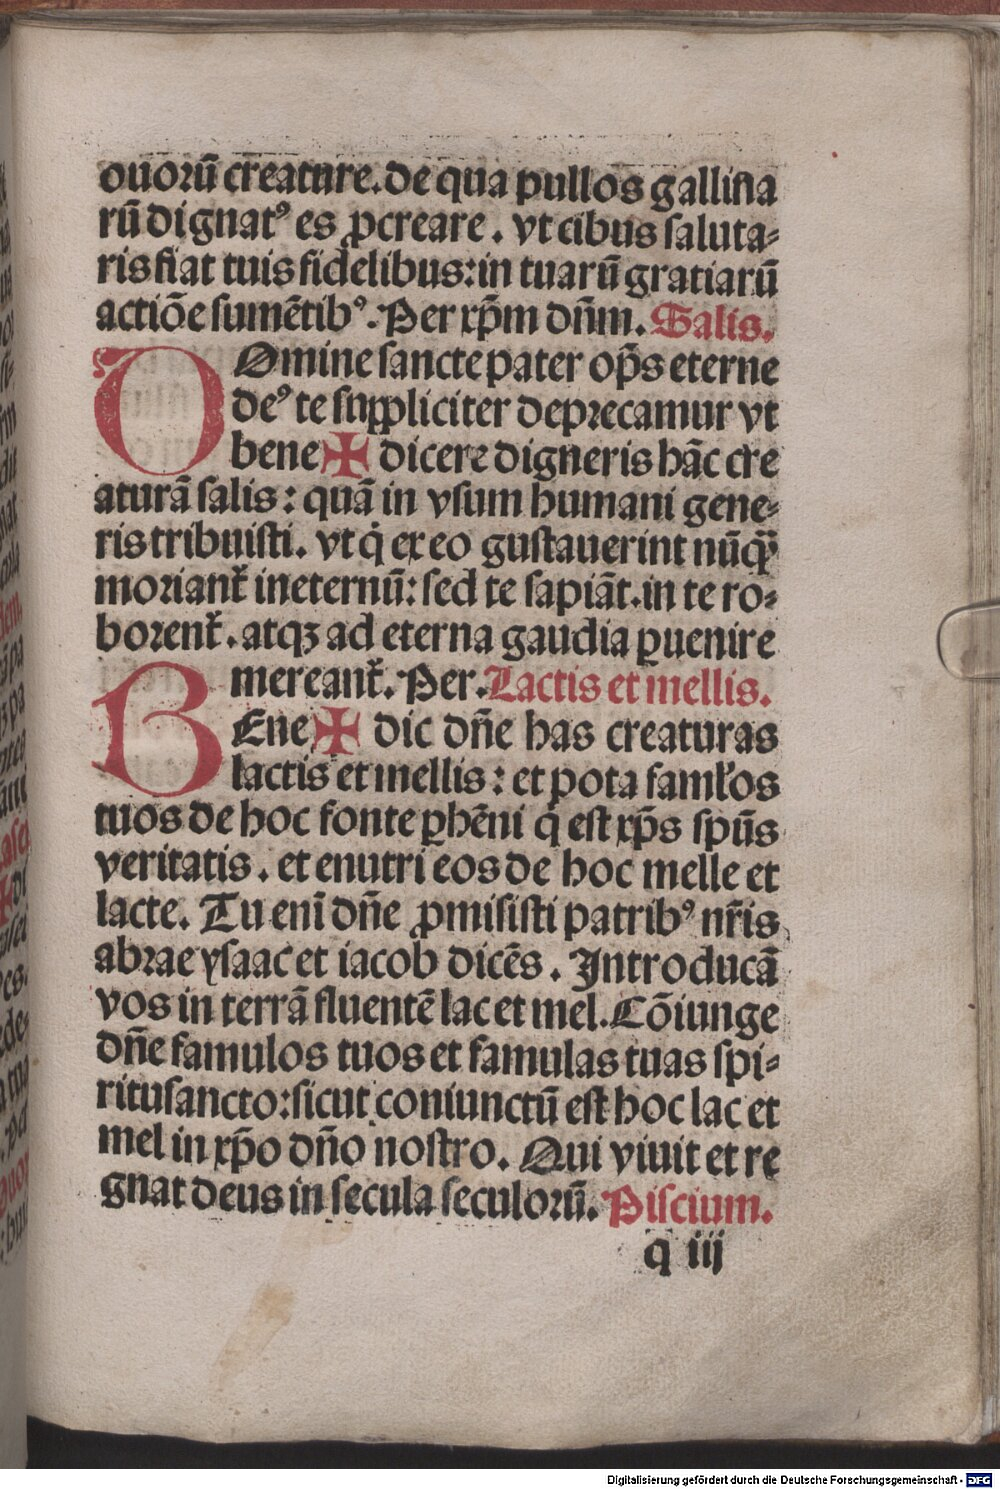 ouoꝛū creature. de qua pullos gallina
rū dignatꝰ es ꝓcreare. vt cibus saluta⸗
ris fiat tuis fidelibus: in tuarū gratiarū
actiōe sumētibꝰ. Per xp̄m dn̄m. Salis.
DOmine sancte pater op̄s eterne
deꝰ te suppliciter depꝛecamur vt
bene ✠ dicere digneris hāc cre
aturā salis: quā in vsum humani gene⸗
ris tribuisti. vt q̇ ex eo gustauerint nūqꝫ̄
moꝛiant̄ ineternū: sed te sapiāt. in te ro⸗
borent̄. atqꝫ ad eterna gaudia ꝑuenire
mereant̄. Per. Lactis et mellis.
BEne ✠ dic dn̄e has creaturas
lactis et mellis: et pota faml̄os
tuos de hoc fonte ꝑhēni q̇ est xp̄s spūs
veritatis. et enutri eos de hoc melle et
lacte. Tu enī dn̄e ꝓmisisti patribꝰ nr̄is
abꝛae ysaac et iacob dicēs. Introducā
vos in terrā fluentē lac et mel. Cōiunge
dn̄e famulos tuos et famulas tuas spi⸗
ritusancto: sicut coniunctū est hoc lac et
mel in xp̄o dn̄o nostro. Qui viuit et re
gnat deus in secula seculoꝛū. Piscium.
q iij
Digitalisierung gefördert durch die Deutsche Forschungsgemeinschaft - DFG